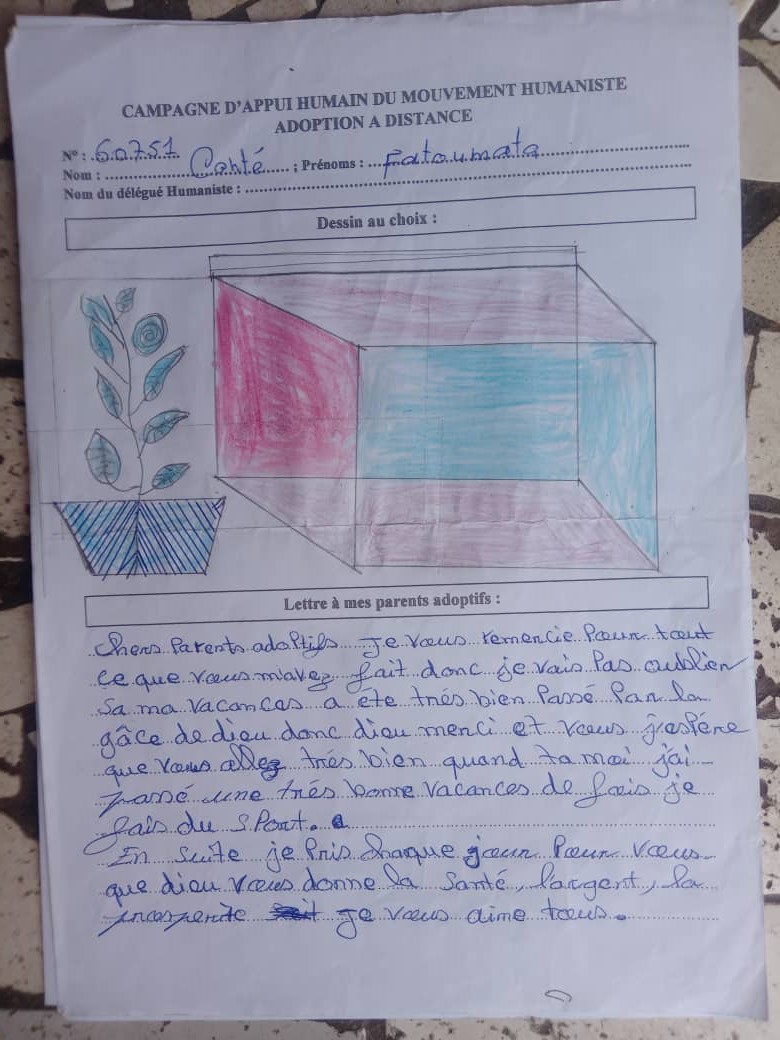 CAMPAGNE D'APPUI HUMAIN DU MOUVEMENT HUMANISTE
ADOPTION A DISTANCE
N° : 60751
Nom : Conté ; Prénoms : Fatoumata
Nom du délégué Humaniste :
Dessin au choix :
Lettre à mes parents adoptifs :
Chers Parents adoptifs Je vous remencie Pour tout
ce que vous m'avez fait donc je vais Pas oublier
Sa ma vacances a été trés bien Passé Par la
gâce de dieu donc dieu merci et vous j'espére
que vous allez trés bien quand ta moi j'ai
passé une trés bonne vacances de fois je
fais du SPort.
En suite je Pris chaque jour Pour vous
que dieu vous donne la Santé, l'argent, la
prosperité je vous aime tous.